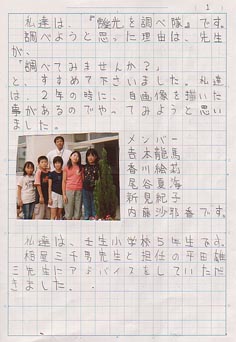 (1)
私達は、『観光を調べ隊』です。
調べようと思った理由は、先生
が、
「調べてみませんか？」
と、すすめて下さいました。私達
は２年の時に、自画像を描いた
事があるのでやってみようと思い
ました。
メンバー
吉本龍馬
香川絵莉
尾谷夏海
新見紀子
内藤沙耶香です。
私達は、士生小学校５年生です。
先生と担任の平田雄
三先生にアドバイスをしていただ
きました。